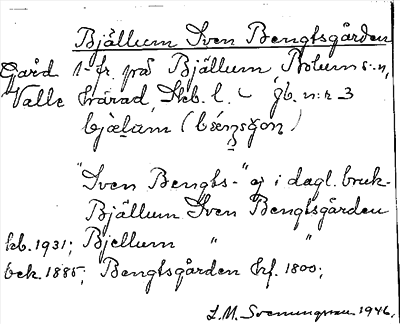 Bjällum Sven Bengtsgården
Gård 1 fr. på Bjällum Bolum s:n,
Valle härad, Skb. l. – gb. n:r 3
bjælam (bǽnsgọn)
"Sven Bengts-" ej i dagl. bruk-
Bjällum Sven Bengtsgården
kb. 1931; Bjellum " "
bek. 1885; Bengtsgården hf. 1800;
L. M. Svenungsson 1946.